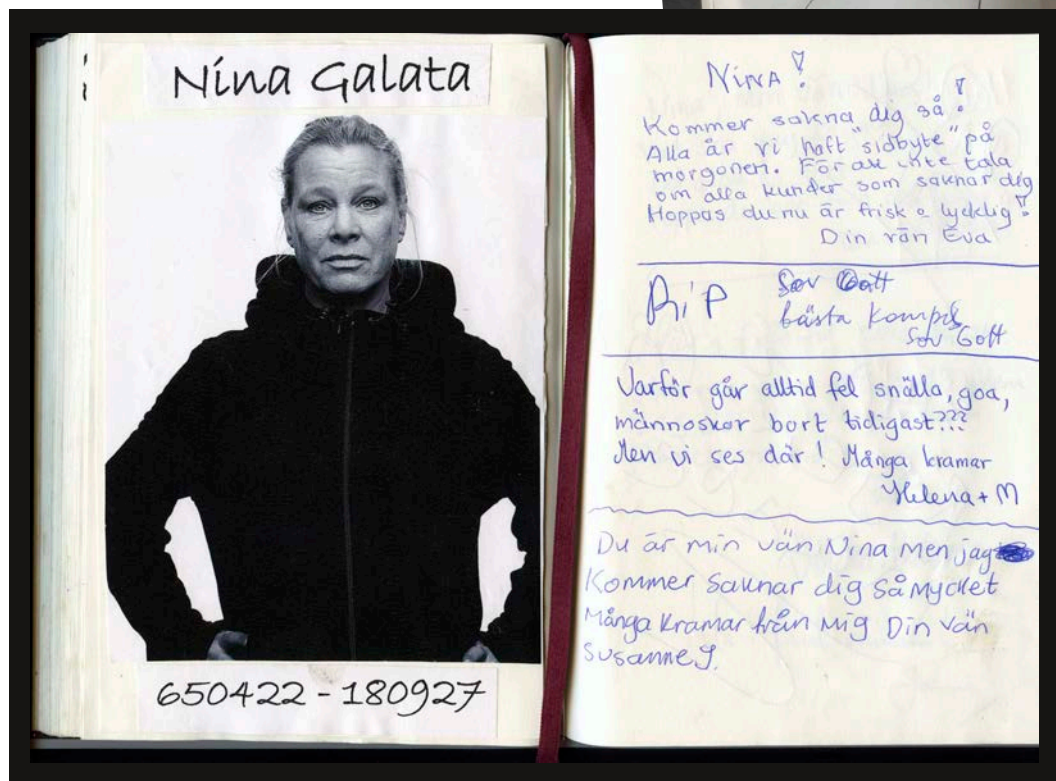 Nina Galata
650422 - 180927
NINA!
Kommer sakna dig så!
Alla år vi haft "sidbyte" på
morgonen. För att inte tala
om alla kunder som saknar dig
Hoppas du nu är frisk o lycklig!
Din vän Eva
RiP
Sov Gott
bästa kompis
Sov Gott
Varför går alltid fel snälla, goa,
männoskor bort tidigast???
Men vi ses där! Många kramar
Helena + M
Du är min vän Nina men jag
Kommer Saknar dig så mycket
Många kramar från mig Din vän
Susanne J.